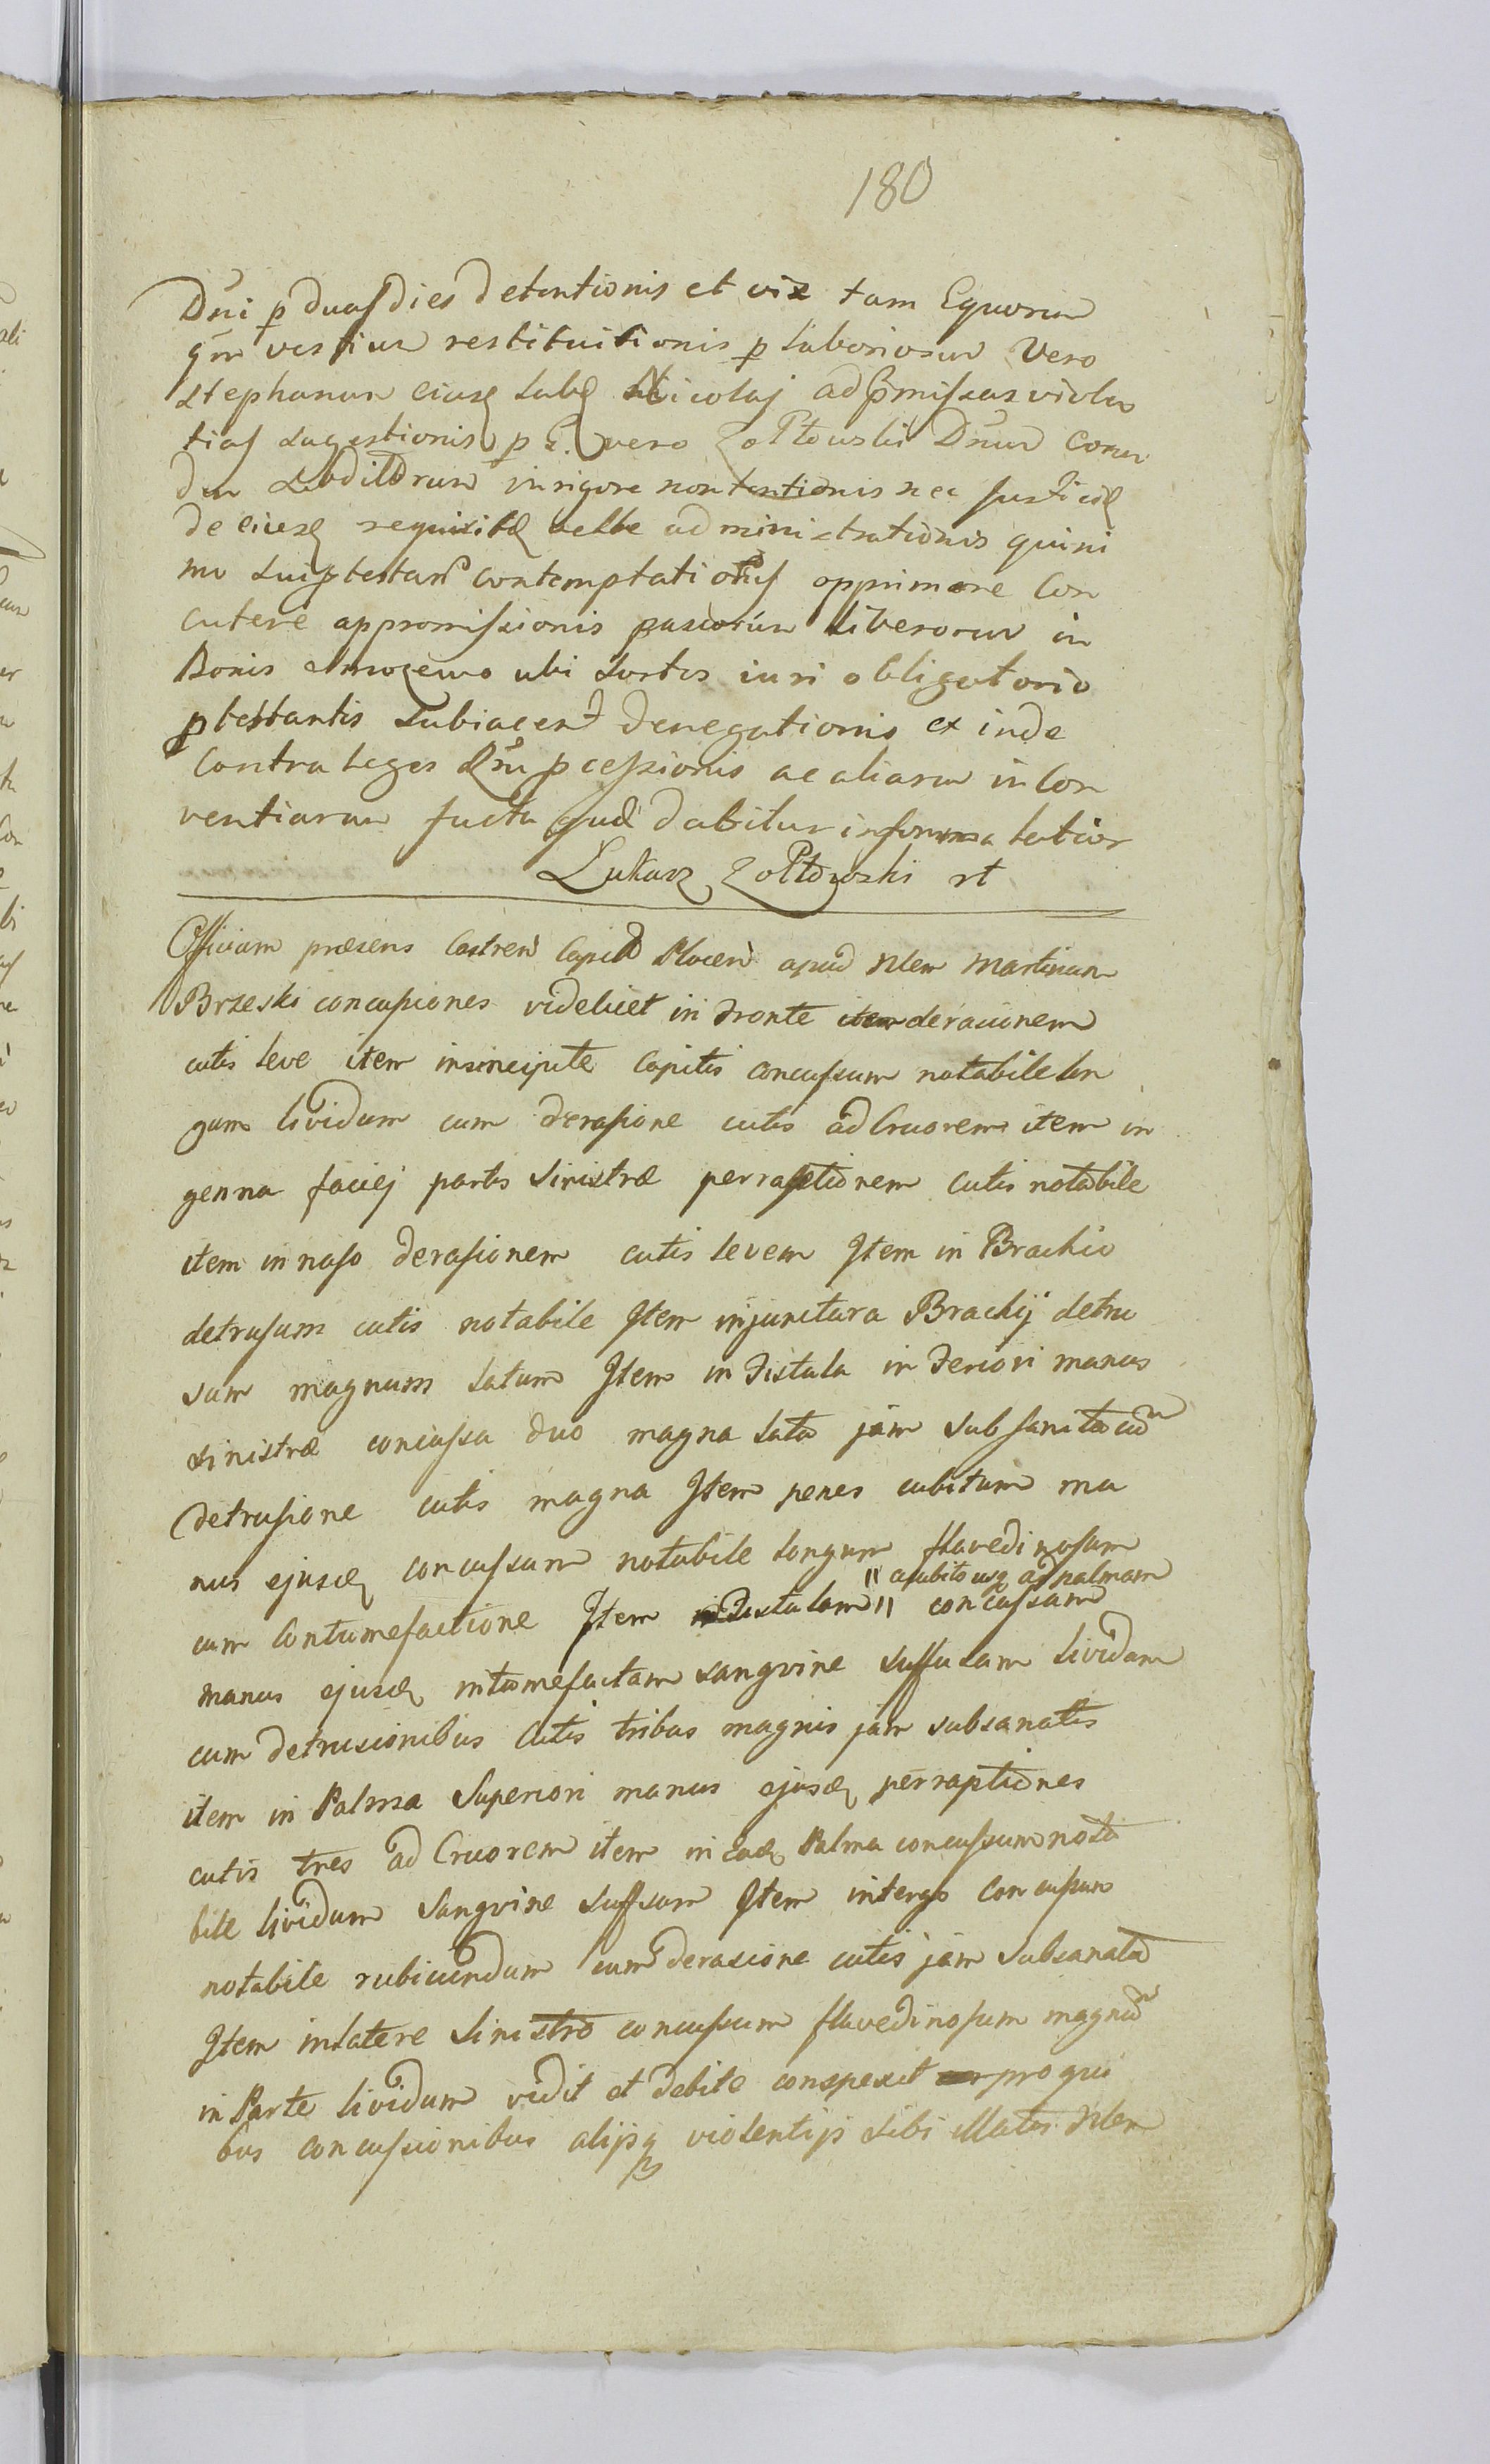 180
Dni p duas dies detentionis et vix tam Equorum
qm vestium restituitionis p laboriosum vero
Stephanum eiusq Nicolaj ad pmissas violen
tias sugestionis p G. vero Zołtowski Dnum eorum
dem Subditorum in rigore non tentionis nec Justitiæ
de eiusq requisitæ velle administrationis quini
mo sui ptestan contemptationis opprimere Con
cutere appromissionis pascorum liberorum in
Bonis ubi Sortes iuri obligatorio
ptestantis subiacent denegationis et inde
Contra leges Rni pcessionis ac aliarum in Con
ventiarum facta quæ dabitur in forma latior
Lukasz Zołtowski rt
Officium præsens Castren Capit Plocen apud Nlem Martinum
Brzeski concussiones videlicet in fronte derasionem
cutis leve item in sincipite Capitis concussum notabile lon
gum lividum cum derasione cutis ad Cruorem item in
genna faciej partis Sinistræ perraptionem cutis notabile
item in naso derasionem cutis levem Item in Brachio
detrusum cutis notabile Item in junctura Brachij detru
sum magnum latum Item in fistula inferiori manus
sinistræ concussa duo magna lata jam subsanita cum
detrusione cutis magna Item penes cubitum ma
nus ejusdq concussum notabile longum flavedinosum
cum Contumefactione Item fistulam // a cubito usq ad palmam // concussam
manus ejusdq intumefactam sangvine suffusam lividam
cum detrusionibus Cutis tribus magnis jam subsanatis
item in Palma Superiori manus ejusdq perraptiones
cutis tres ad Cruorem item in eadq Palma concussum nota
bile lividum Sangvine suffsum Item in tergo concussum
notabile rubicundum cum derasione cutis jam subsanata
Item in latere Sinistro concussum flavedinosum magnum
in Parte lividum vidit et debite conspexit pro qui
bus concussionibus alijsq violentijs sibi illatis Nlem